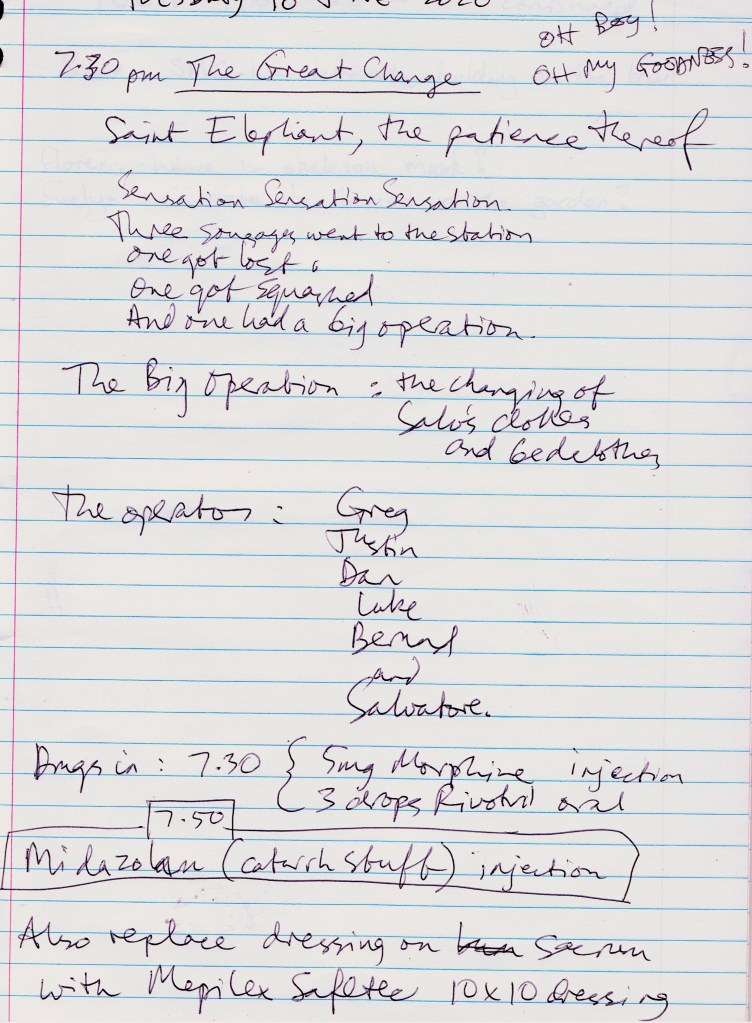 Tuesday 16 June 2020
OH Boy!
7.30 pm The Great Change
OH MY GOODNESS!
Saint Elephant, the patience thereof
Sensation Sensation Sensation.
Three sausages went to the station
one got lost.
One got squashed
And one had a big operation.
The Big Operation : the changing of
Salv's clothes
and bedclothes
The operators : Greg
Justin
Dan
Luke
Bernard
and
Salvatore.
Drugs in : 7.30 { 5mg Morphine injection
3 drops Rivotril oral
7.50
Midazolam (catarrh stuff) injection
Also replace dressing on sacrum
with Mepilex Safetec 10x10 dressing